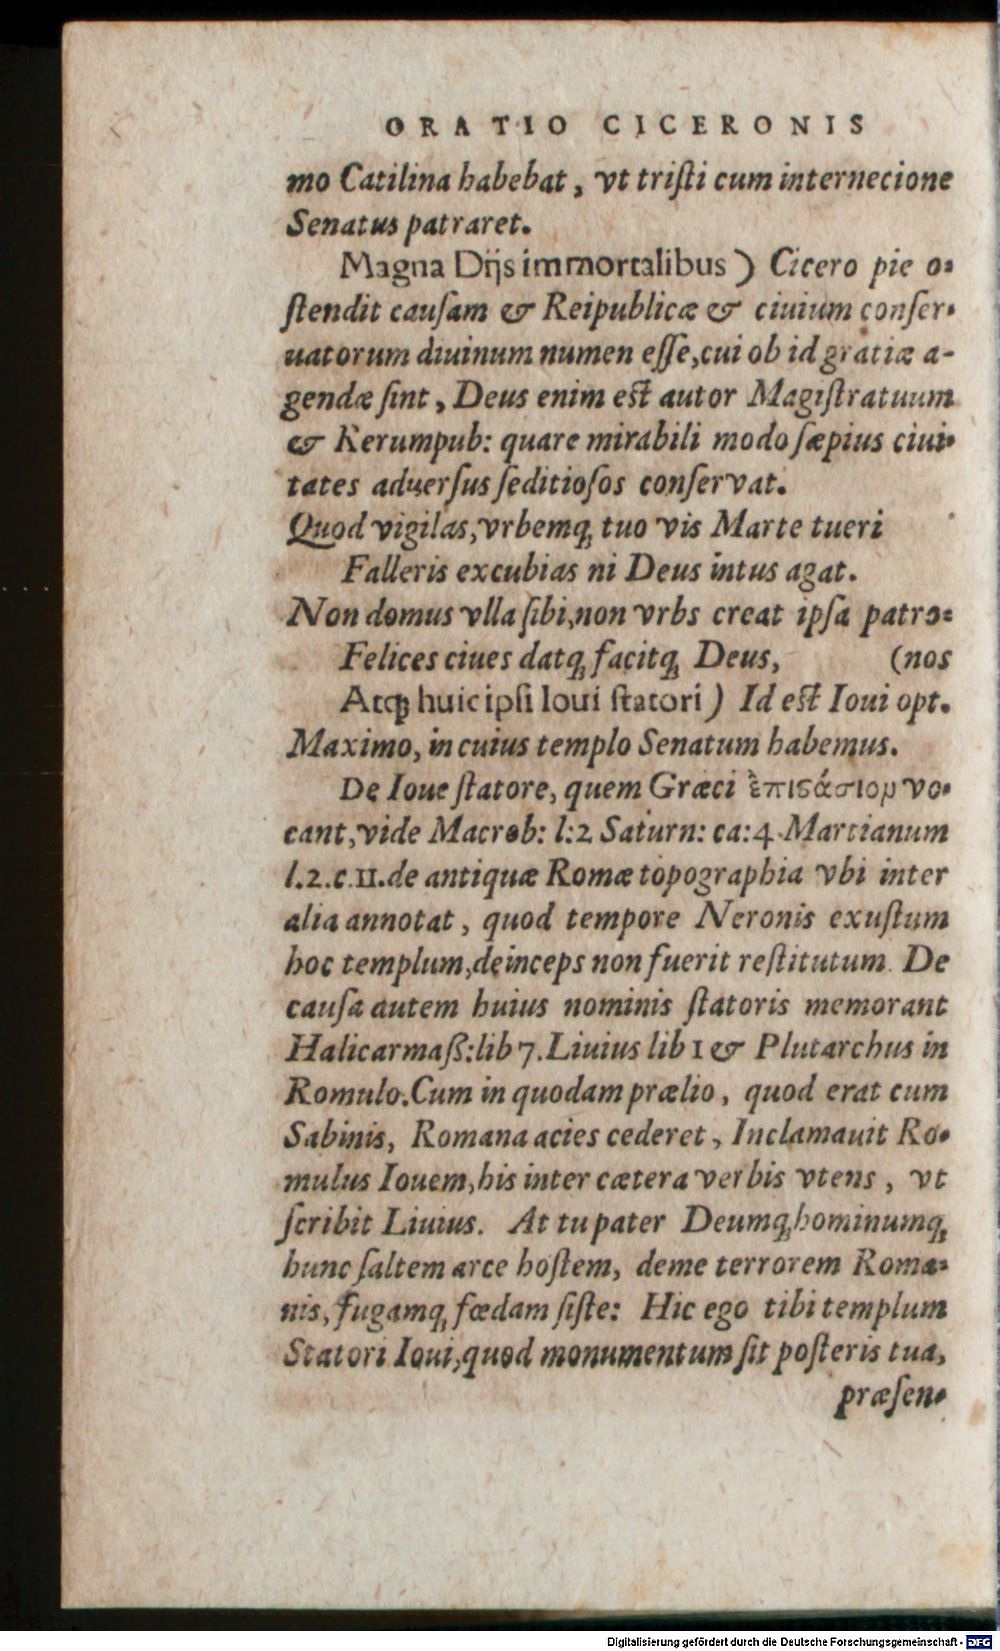 ORATIO CICERONIS
mo Catilina habebat, vt triſti cum internecione
Senatus patraret.
Magna Dijs immortalibus) Cicero pie o⸗
ſtendit cauſam & Reipublicæ & ciuium conſer⸗
uatorum diuinum numen eſſe, cui ob id gratiæ a-
gendæ ſint, Deus enim eſt autor Magiſtratuum
& Rerumpub: quare mirabili modo ſæpius ciui⸗
tates aduerſus ſeditioſos conſervat.
Quod vigilas, vrbemq́; tuo vis Marte tueri
Falleris excubias ni Deus intus agat.
Non domus vlla ſibi, non vrbs creat ipſa patro⸗
Felices ciues datq́; facitq́; Deus, (nos
Atq; huic ipſi Ioui ſtatori) Id eſt Ioui opt.
Maximo, in cuius templo Senatum habemus.
De Ioue ſtatore, quem Græci ἐπιϛάσιομ vo⸗
cant, vide Macrob: l:2 Saturn: ca:4. Martianum
l.2.c.II. de antiquæ Romæ topographia vbi inter
alia annotat, quod tempore Neronis exuſtum
hoc templum, deinceps non fuerit reſtitutum. De
cauſa autem huius nominis ſtatoris memorant
Halicarmaß: lib 7. Liuius lib 1 & Plutarchus in
Romulo. Cum in quodam prælio, quod erat cum
Sabinis, Romana acies cederet, Inclamauit Ro⸗
mulus Iouem, his inter cætera verbis vtens, vt
ſcribit Liuius. At tu pater Deumq́; hominumq́;
hunc ſaltem arce hoſtem, deme terrorem Roma⸗
nis, fugamq́; fœdam ſiſte: Hic ego tibi templum
Statori Ioui, quod monumentum ſit poſteris tua,
præſen⸗
Digitalisierung gefördert durch die Deutsche Forschungsgemeinschaft - DFG